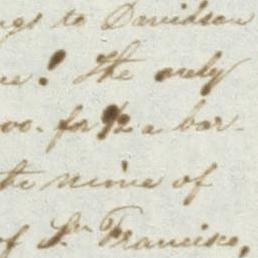 ngs to Davidson
ue! The only
00. for 1/2 a bar-
te nine of
of Sn Francisco,